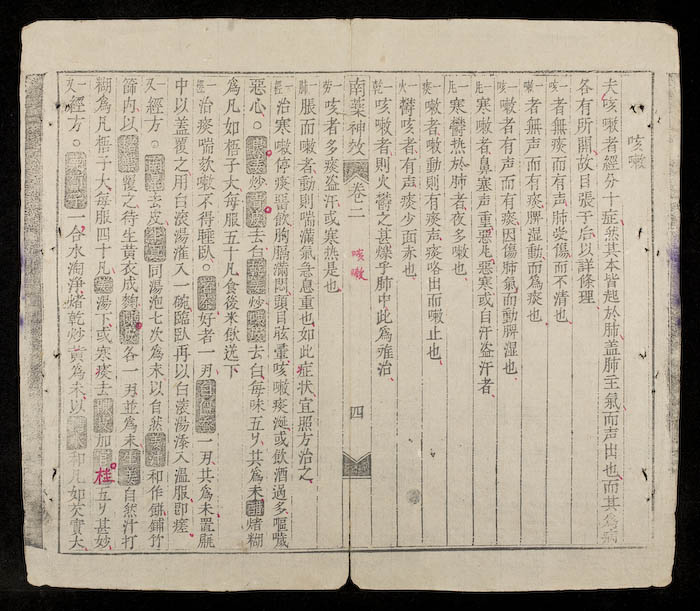 咳嗽
夫咳嗽者經分十症然其本皆起於肺盖肺主氣而声出也而其為病
各有所關故目張于后以詳條理
一咳者無痰而有声肺受傷而不清也
一嗽者無声而有痰脾湿動而為痰也
一咳嗽者有声而有痰因傷肺氣而動脾湿也
一風寒嗽者鼻寒声重惡風惡寒或自汗盗汗者
一風寒鬱热於肺者夜多嗽也
一痰嗽者嗽動則有痰声痰咯出而嗽止也
一火鬱咳者有声痰少面赤也
一乾咳嗽者則火鬱之甚爍乎肺中此為难治
南藥神效 卷二 咳嗽 四
一劳咳者多痰盗汗或寒热是也
一肺脹而嗽者動則喘滿氣急息重也如此症状宜照方治之
一經治寒嗽停痰畱飲胸膈滿悶頭目眩暈咳嗽痰涎或飲酒過多嘔噦
惡心。炒去白炒去白每味五其為末煮糊
為凡如梧子大每服五十凡食後米飲送下
一經治痰喘欬嗽不得睡臥。好者一一其為末置
中以盖覆之用白滚湯灌入一碗臨臥再以白滚湯添入溫服即瘥
一又經方。去皮同湯泡七次為末以自然和作餅鋪竹
篩内以覆之待生黄衣成麯各一並為末自然汁打
糊為凡梧子大每服四十凡湯下或寒痰去加桂五甚妙
一又經方。一合水淘淨乾炒黄為末以和凡如芡實大